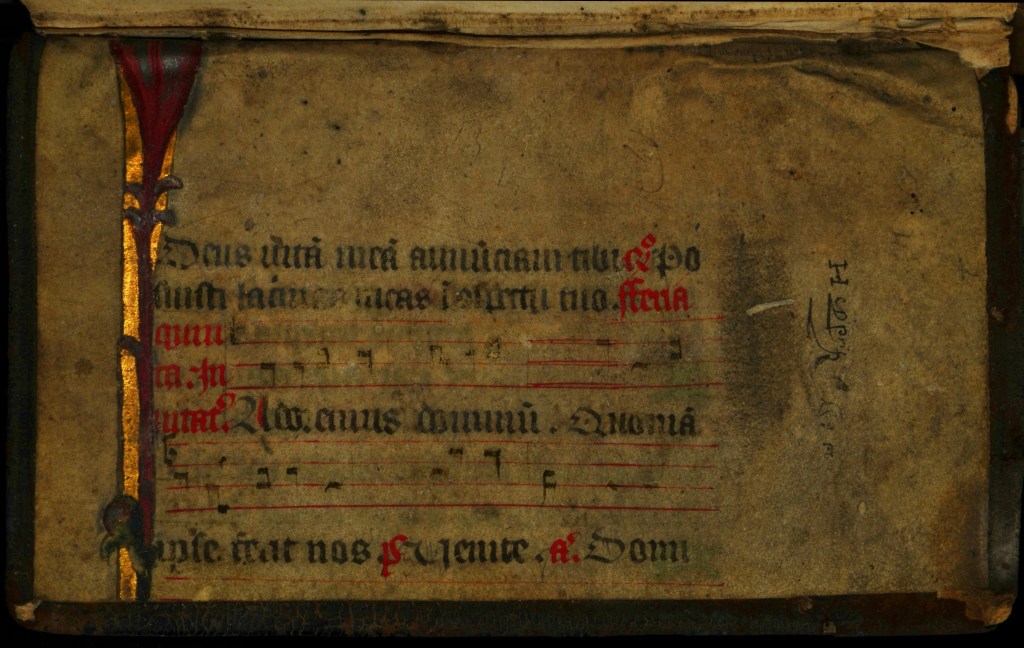 Deus uitā meā annūciaui tibi Po
suisti lacrimas meas ī ɔspectu tuo. fferia
quin
ta. In
uitat. Adoremus dominū. Quoniā
ipse fecit nos ps Uenite. a. Domi